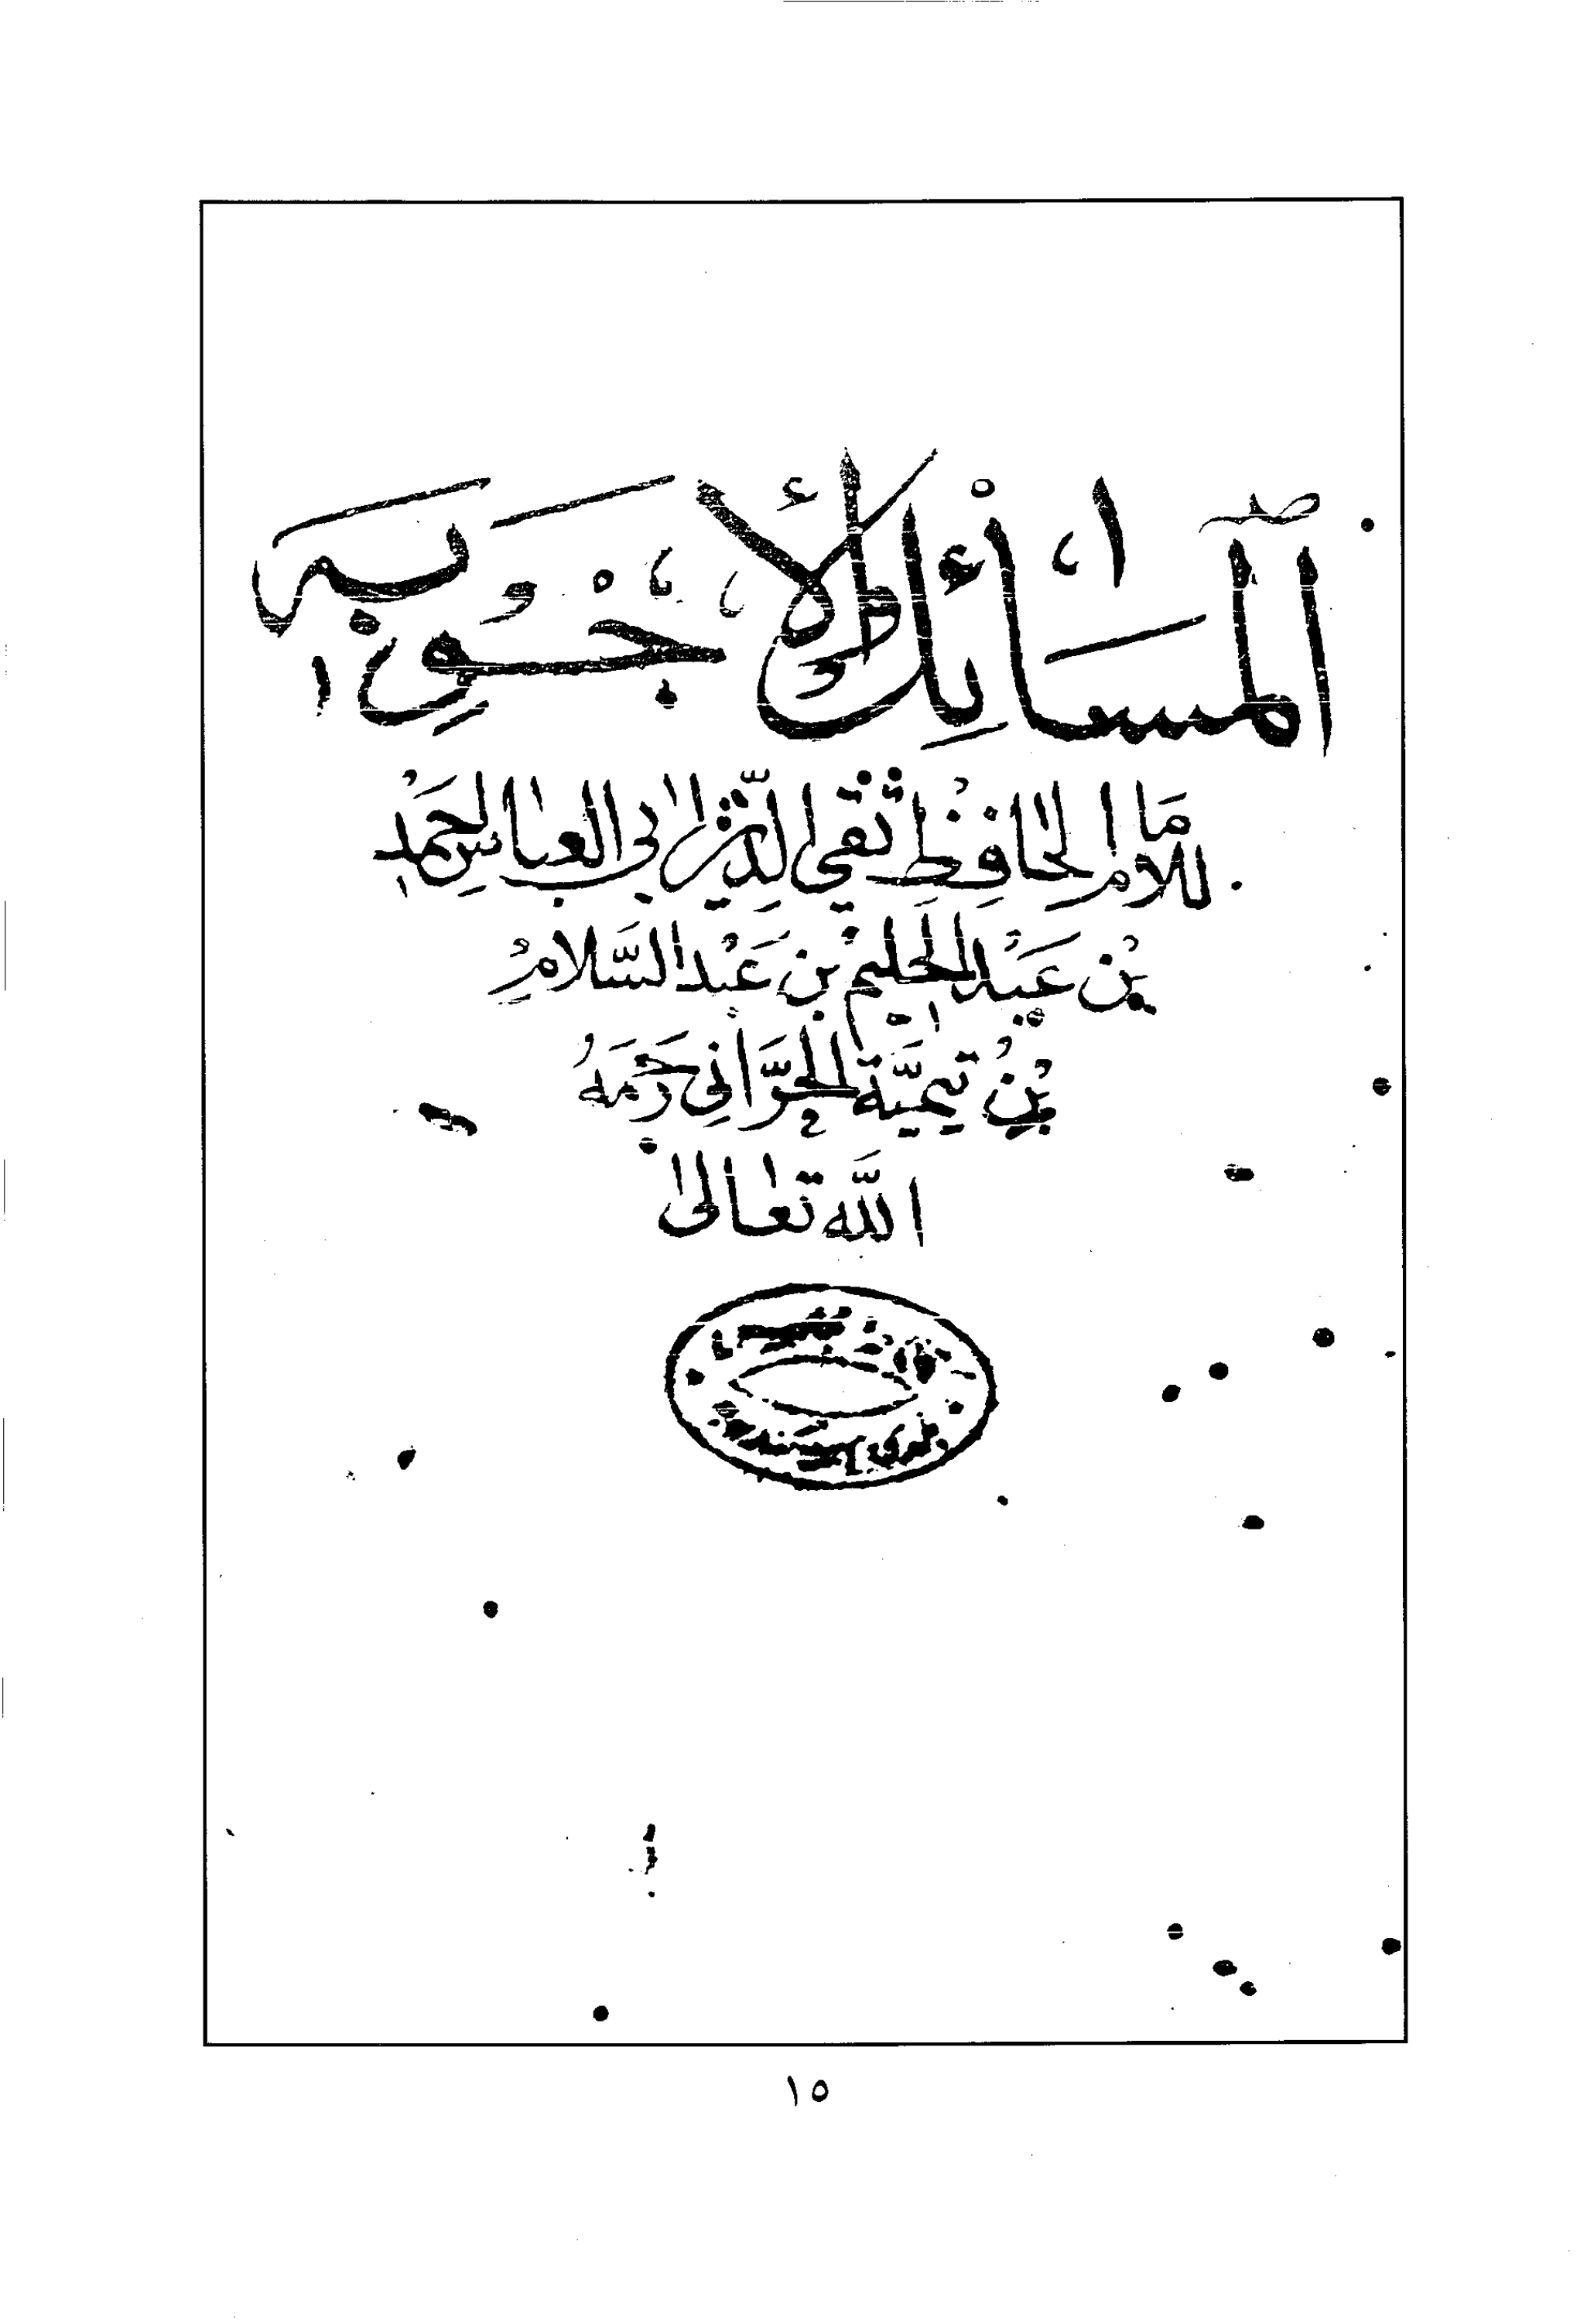 المسائل الأجوبة
للإمام الحافظ تقي الدين أبي العباس أحمد
بن عبد الحليم بن عبد السلام
بن تيمية الحراني رحمه
الله تعالى
١٥